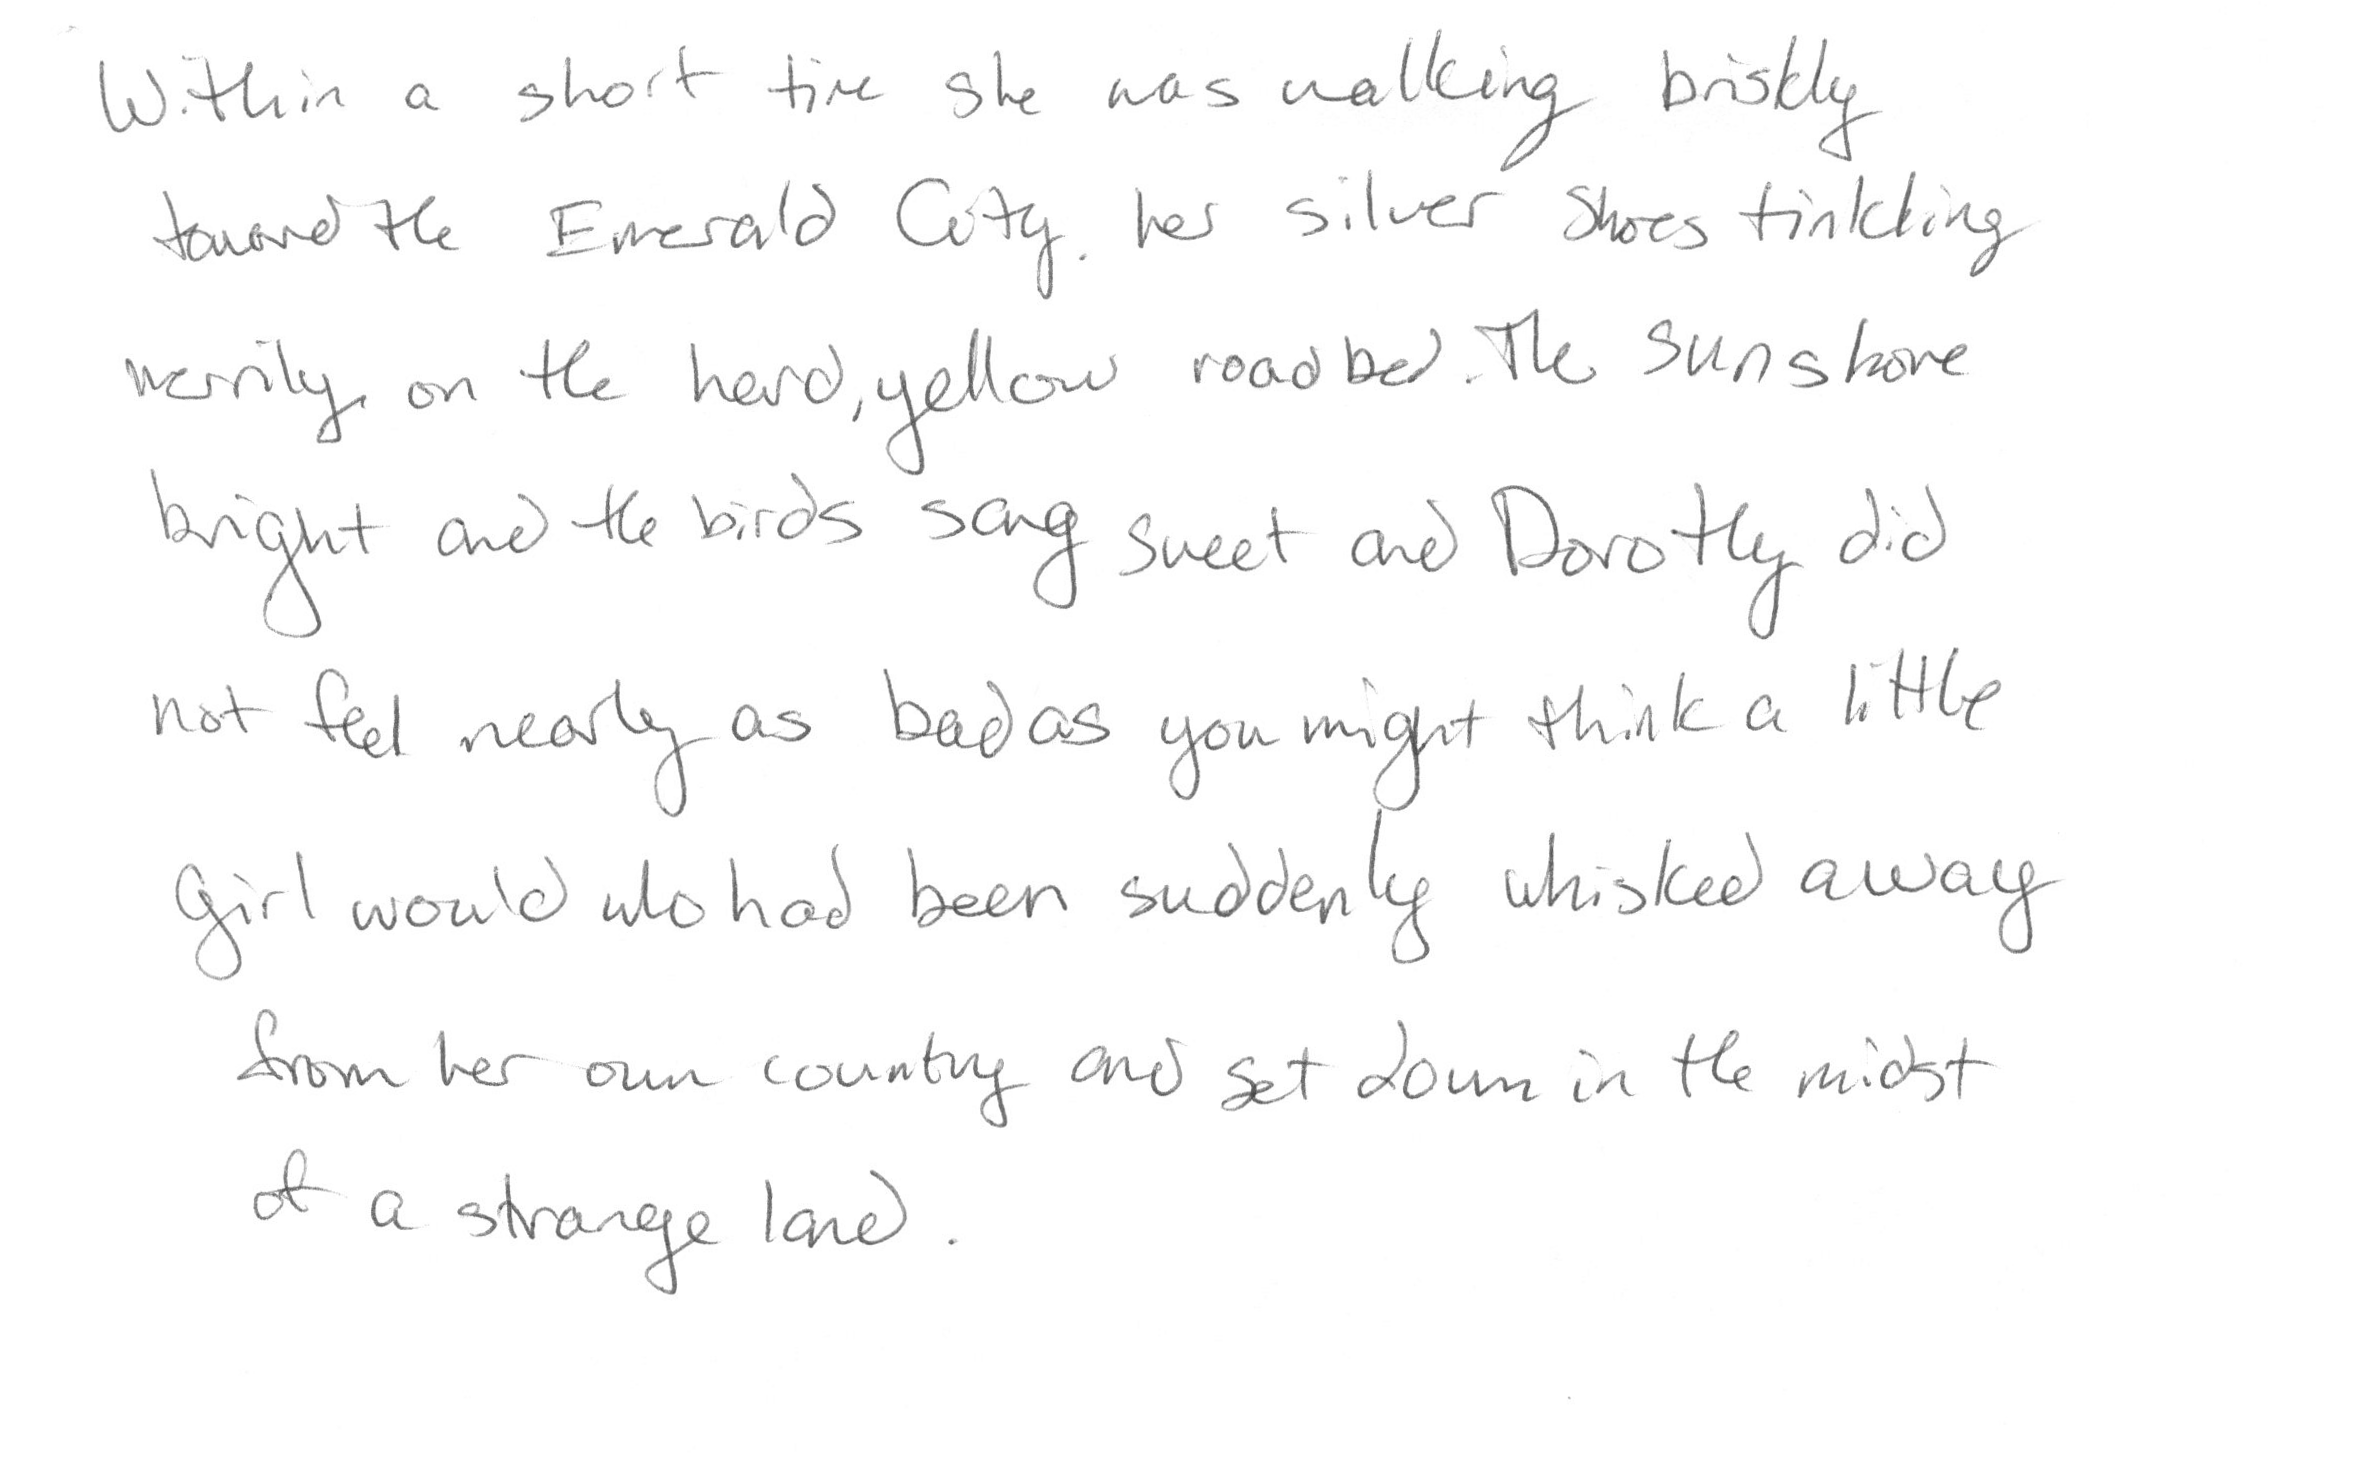 Within a short time she was walking briskly
toward the Emerald City. her silver shoes tinkling
merrily on the hard, yellow road bed. The sun shone
bright and the birds sang sweet and Dorothy did
not feel nearly as bad as you might think a little
girl would who had been suddenly whisked away
from her own country and set down in the midst
of a strange land.